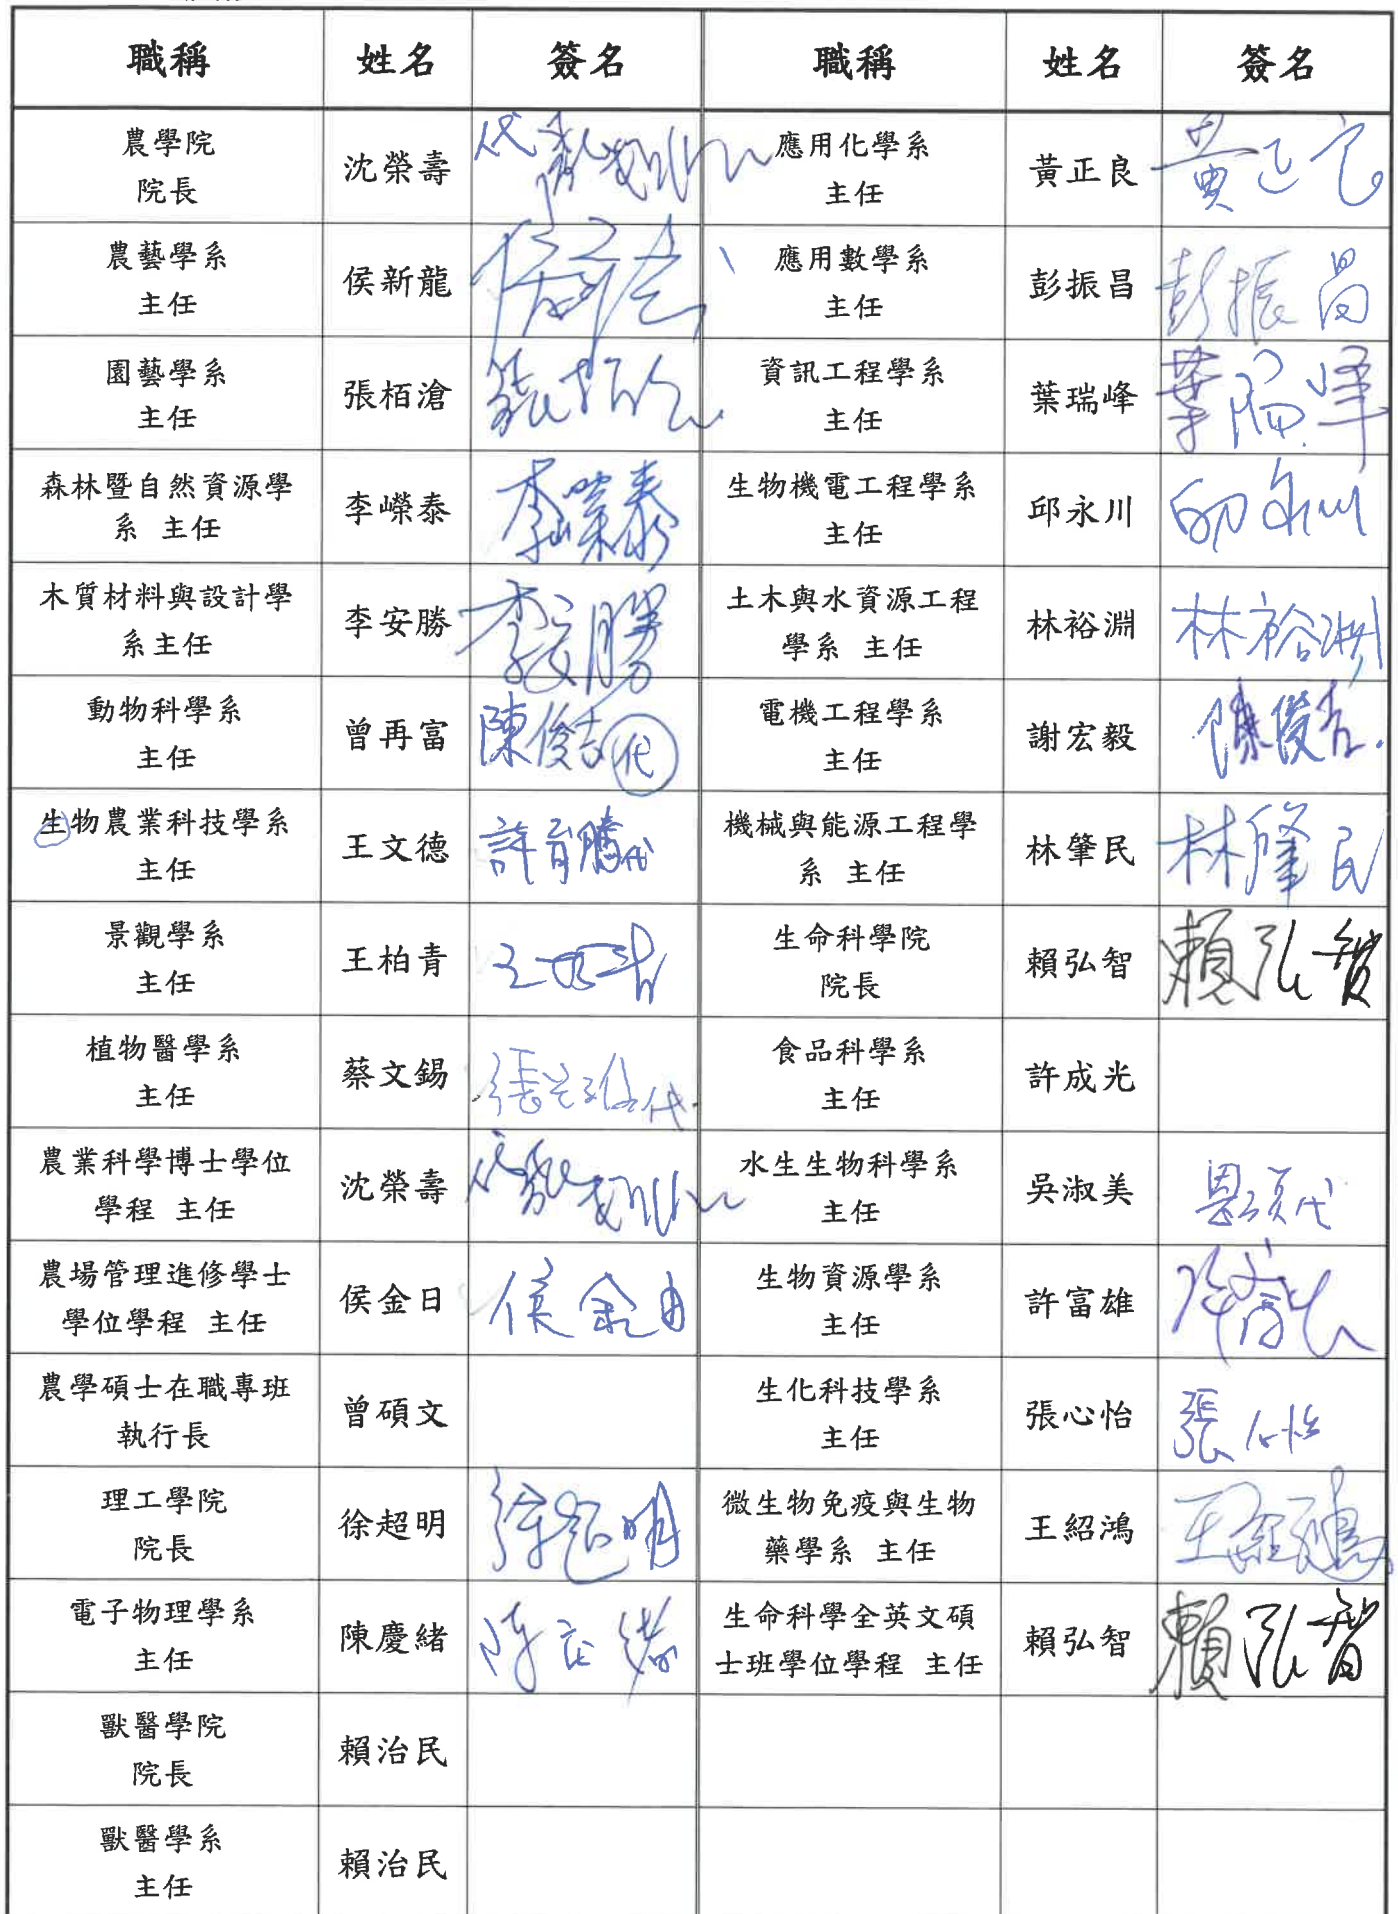 職稱 姓名 簽名 職稱 姓名 簽名
農學院
院長 沈榮壽 代 應用化學系
主任 黃正良 黃正良
農藝學系
主任 侯新龍 應用數學系
主任 彭振昌 彭振昌
園藝學系
主任 張栢滄 張栢滄 資訊工程學系
主任 葉瑞峰 葉瑞峰
森林暨自然資源學
系 主任 李嶸泰 李嶸泰 生物機電工程學系
主任 邱永川 邱永川
木質材料與設計學
系主任 李安勝 李安勝 土木與水資源工程
學系 主任 林裕淵 林裕淵
動物科學系
主任 曾再富 陳俊吉 代 電機工程學系
主任 謝宏毅
生物農業科技學系
主任 王文德 許育騰代 機械與能源工程學
系 主任 林肇民 林肇民
景觀學系
主任 王柏青 王柏青 生命科學院
院長 賴弘智 賴弘智
植物醫學系
主任 蔡文錫 代 食品科學系
主任 許成光
農業科學博士學位
學程 主任 沈榮壽 代 水生生物科學系
主任 吳淑美 代
農場管理進修學士
學位學程 主任 侯金日 侯金日 生物資源學系
主任 許富雄 許富雄
農學碩士在職專班
執行長 曾碩文 生化科技學系
主任 張心怡 張心怡
理工學院
院長 徐超明 徐超明 微生物免疫與生物
藥學系 主任 王紹鴻 王紹鴻
電子物理學系
主任 陳慶緒 陳慶緒 生命科學全英文碩
士班學位學程 主任 賴弘智 賴弘智
獸醫學院
院長 賴治民
獸醫學系
主任 賴治民